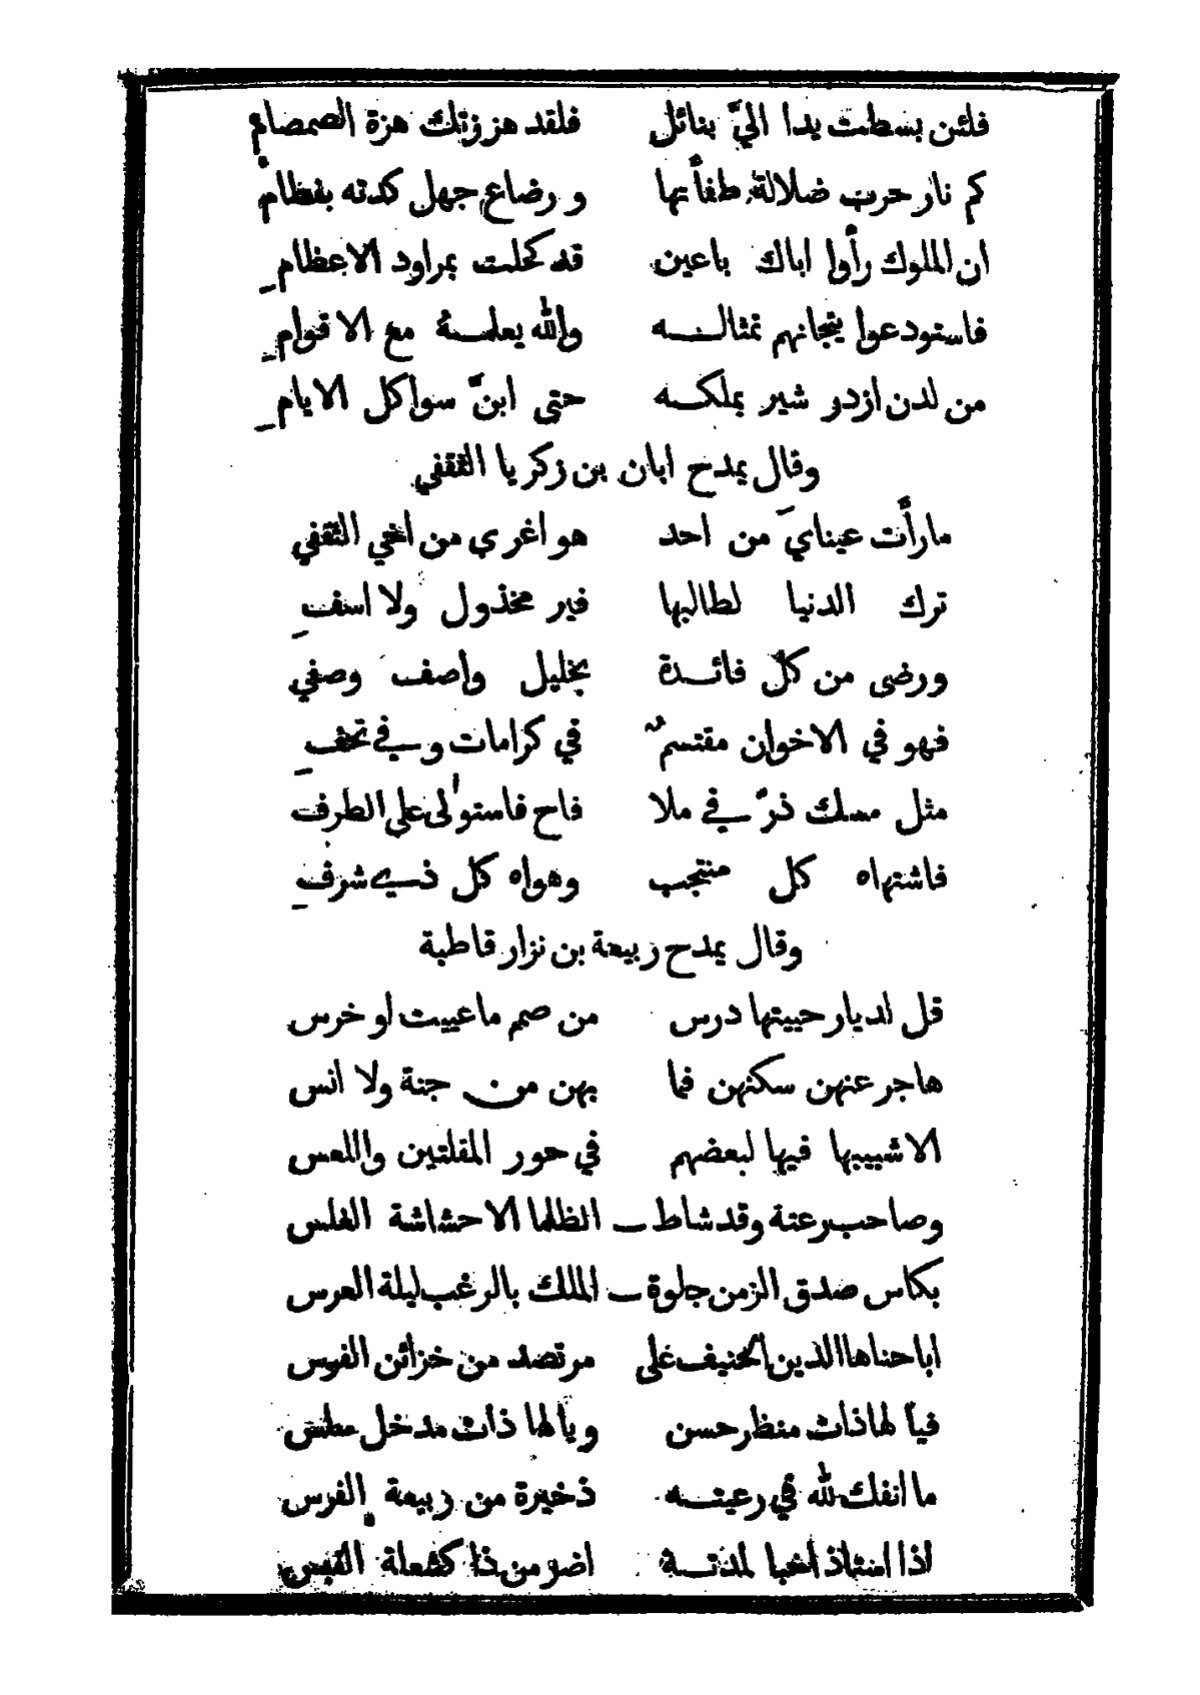 فلئن بسطت يدا اليّ بنائل فلقد هززتك هزة الصمصام
كم نار حرب ضلالة طفأتها ورضاع جهل كدته بفطام
ان الملوك رأوا اباك باعين قد كحلت بمراود الاعظام
فاستودعوا تيجانهم تمثالـــه والله يعلمـــه مع الاقوام
من لدن ازدو شير بملكـــه حتى ابنّ سواكل الايام
وقال يمدح ابان بن زكريا الثقفي
مارأت عيناي من احد هو اغري من اخي الثقفي
ترك الدنيا لطالبها غير مخذول ولا اسف
ورضى من كل فائـــدة بخليل واصف وصفي
فهو في الاخوان مقتسم في كرامات وفي تحف
مثل مسك ذرّ في ملا فاح فاستولى على الطرف
فاشتهاه كل منتجب وهواه كل ذي شرف
وقال يمدح ربيعة بن نزار قاطبة
قل لديار حييتها درس من صمم ماعييت او خرس
هاجر عنهن سكنهن فما بهن من جنة ولا انس
الاشبيبها فيها لبعضهم في حور المقلتين واللعس
وصاحب رعتة وقد شاط ـ الظلما الاحشاشة الغلس
بكاس صدق الزمن جلوة ـ الملك بالرغب ليلة العرس
اباحناها الدين الحنيف على مرتصد من خزائن الفرس
فيا لها ذات منظر حسن ويالها ذات مدخل عطس
ما انفك لله في رعيتـــه ذخيرة من ربيعة الفرس
اذا اخبا لمدتـــة اضو من ذا كشعلة القبس